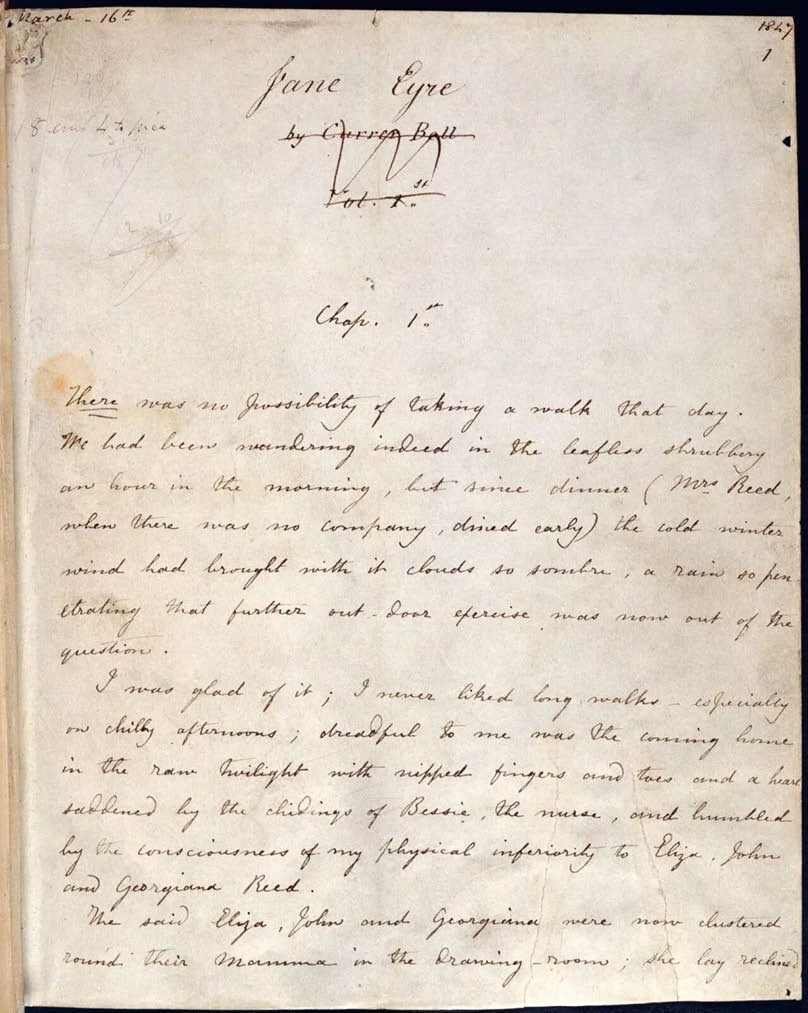 March - 16th
1847
1
Jane Eyre
by Currer Bell
Vol. 1.st
Chap. 1.st
There was no possibility of taking a walk that day.
We had been wandering indeed in the leafless shrubbery
an hour in the morning, but since dinner (Mrs Reed,
when there was no company, dined early) the cold winter
wind had brought with it clouds so sombre, a rain so pen
etrating that further out-door exercise was now out of the
question.
I was glad of it; I never liked long walks - especially
on chilly afternoons; dreadful to me was the coming home
in the raw twilight with nipped fingers and toes and a heart
saddened by the chidings of Bessie, the nurse, and humbled
by the consciousness of my physical inferiority to Eliza, John
and Georgiana Reed.
The said Eliza, John and Georgiana were now clustered
round their Mamma in the drawing-room; she lay reclined